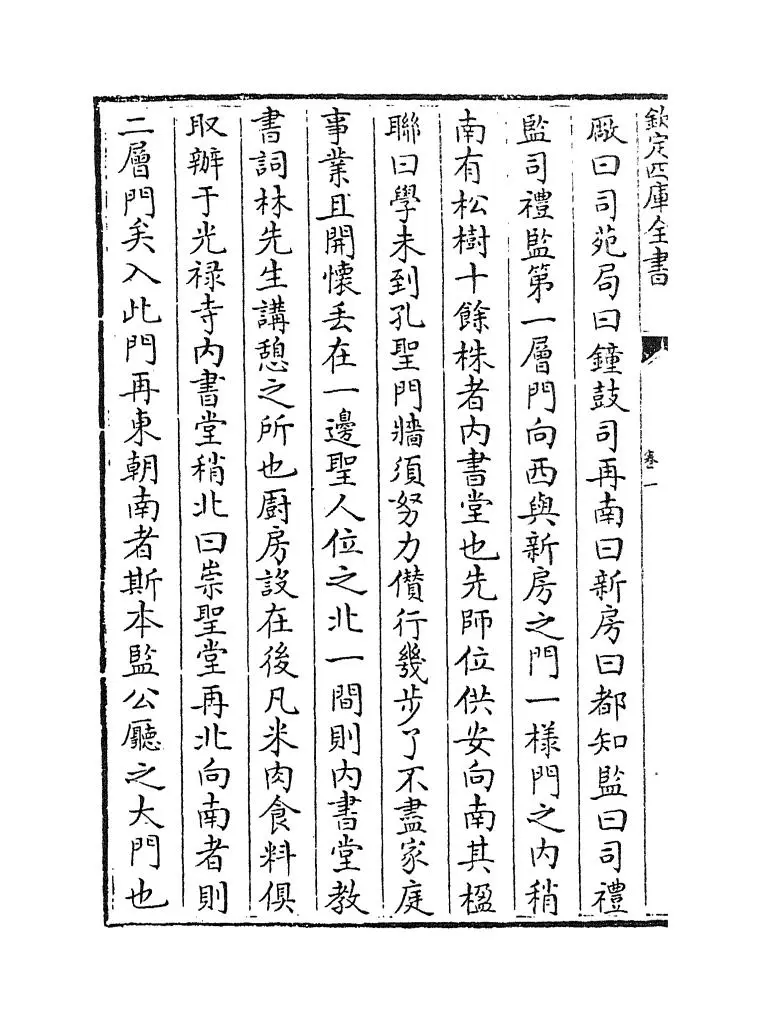 欽定四庫全書
卷一
廠曰司苑局曰鐘鼓司再南曰新房曰都知監曰司禮
監司禮監第一層門向西與新房之門一樣門之内稍
南有松樹十餘株者内書堂也先師位供安向南其楹
聯曰學未到孔聖門牆須努力儹行幾步了不盡家庭
事業且開懷丢在一邊聖人位之北一間則内書堂教
書詞林先生講憩之所也厨房設在後凡米肉食料俱
取辦于光禄寺内書堂稍北曰崇聖堂再北向南者則
二層門矣入此門再東朝南者斯本監公廳之大門也